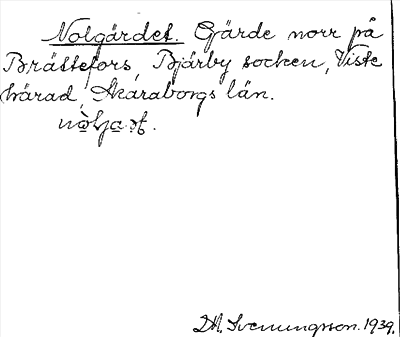 Nolgärdet. Gärde norr på
Brättefors, Bjärby socken, Viste
härad, Skaraborgs län.
D. A. Svenungsson. 1939.